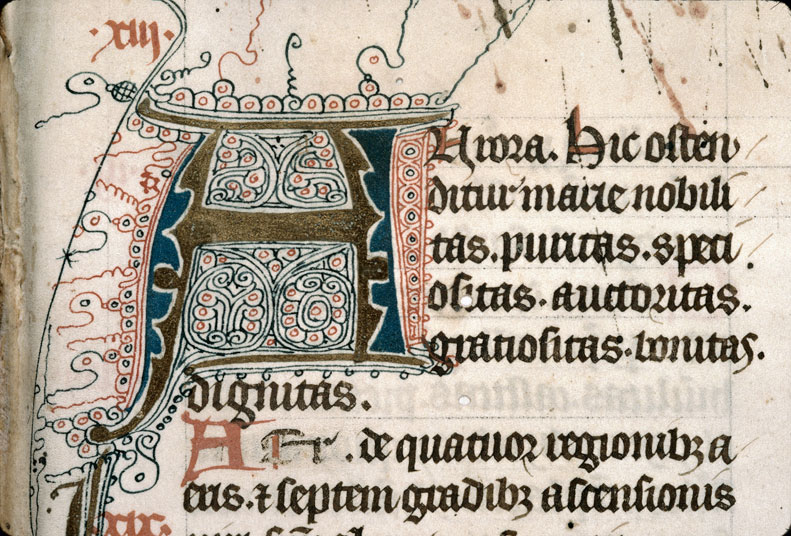 .xiij.
AUrora. Hic osten
ditur marie nobili
tas. puritas. speci
ositas. auctoritas.
gratiositas. bonitas.
dignitas.
A . de quatuor regionibꝫ a
eris. ⁊ septem gradibꝫ ascensionis
xix